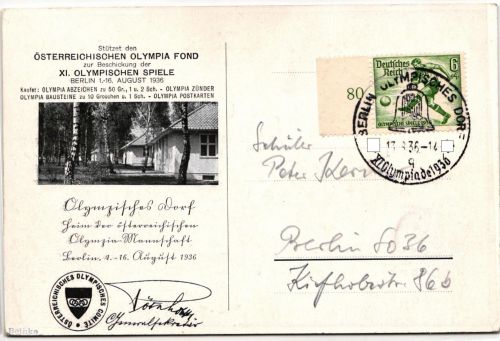 Stützet den
ÖSTERREICHISCHEN OLYMPIA FOND
zur Beschickung der
XI. OLYMPISCHEN SPIELE
BERLIN 1.-16. AUGUST 1936
Kaufet: OLYMPIA ABZEICHEN zu 50 Gr., 1 u. 2 Sch. - OLYMPIA ZÜNDER
OLYMPIA BAUSTEINE zu 10 Groschen u. 1 Sch. - OLYMPIA POSTKARTEN
Olympisches Dorf
Heim der österreichischen
Olympia-Mannschaft
Berlin, 1.-16. August 1936
ÖSTERREICHISCHES OLYMPISCHES COMITÉ
Generalsekretär
80
Deutsches
Reich
6
BERLIN OLYMPISCHES DORF
XI. Olympiade 1936
Schüler
Peter
Berlin SO 36
Kiefholzstr. 86b